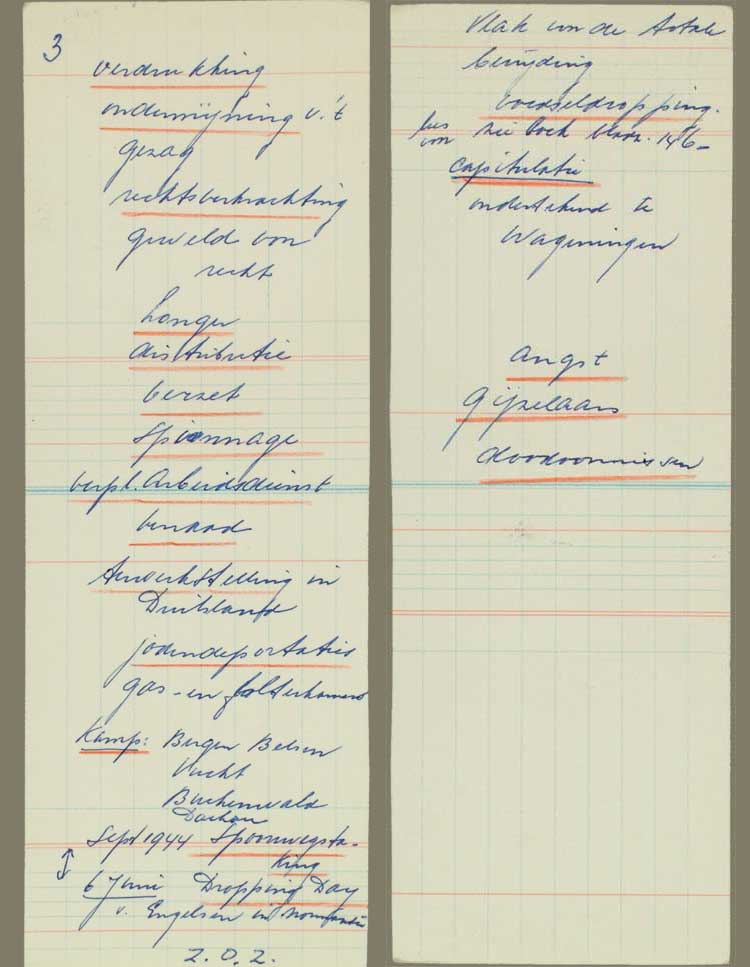 3
verdrukking
ondermijning v. 't
gezag
rechtsverkrachting
geweld von
recht
honger
distributie
verzet
spionnage
verpl. Arbeidsdienst
verraad
tewerkstelling in
Duitsland
jodendeportaties
gas- en folterkamers
Kamp: Bergen Belsen
Vucht
Buchenwald
Dachau
Sept 1944 Spoorwegsta-
king
6 Juni Dropping Day
v. Engelsen in Normandië
z.o.z.
Vlak von de totale
bevrijding
voedseldropping.
lees von zie boek bladz. 146-
capitulatie
ondertekend te
Wageningen
angst
gijzelaars
doodvonnissen